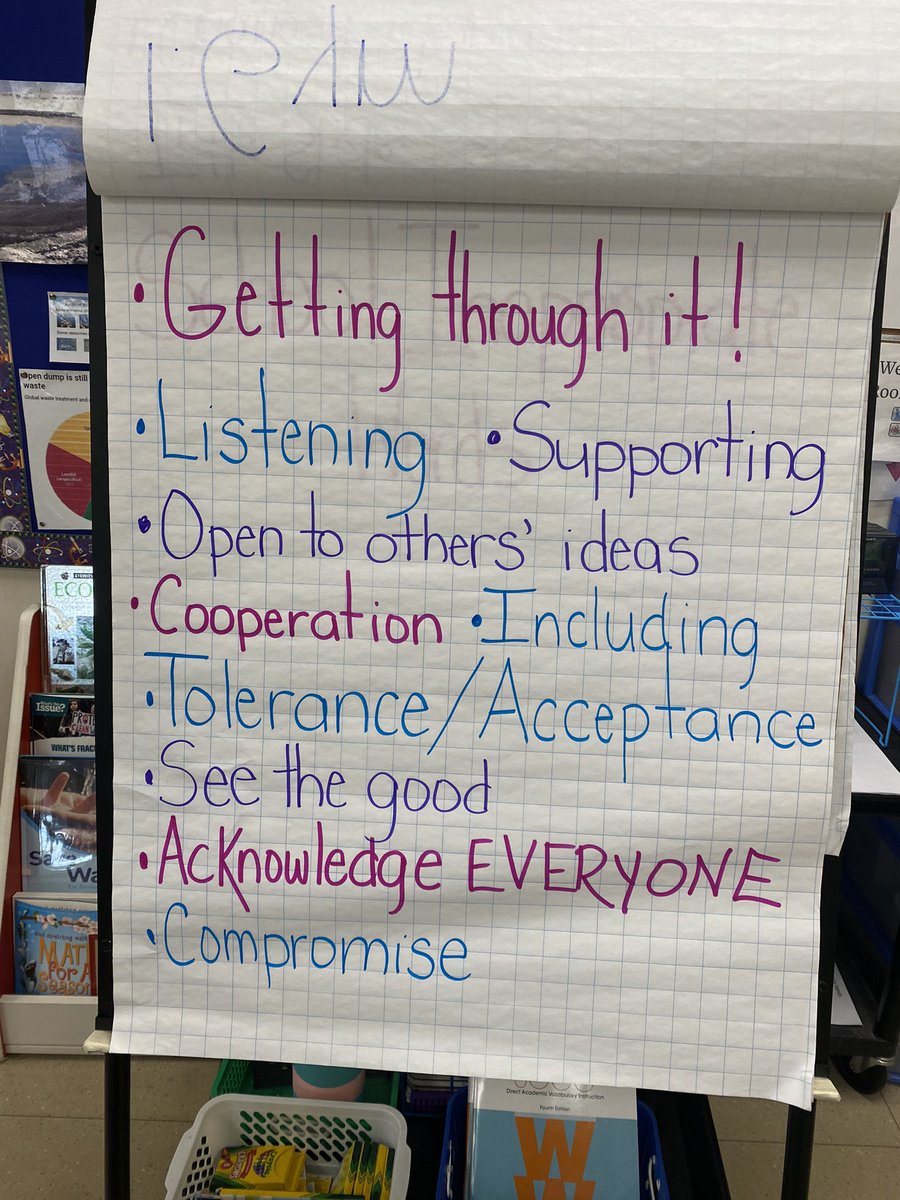 • Getting through it!
• Listening • Supporting
• Open to others' ideas
• Cooperation • Including
• Tolerance/Acceptance
• See the good
• Acknowledge EVERYONE
• Compromise
Open dump is still
waste
Global waste treatment and
We
ECO
What's the
Issue?
WHAT'S FRAC
Save
Wa
MAT
FOR A
SEASON
Direct Academic Vocabulary Instruction
Fourth Edition
W